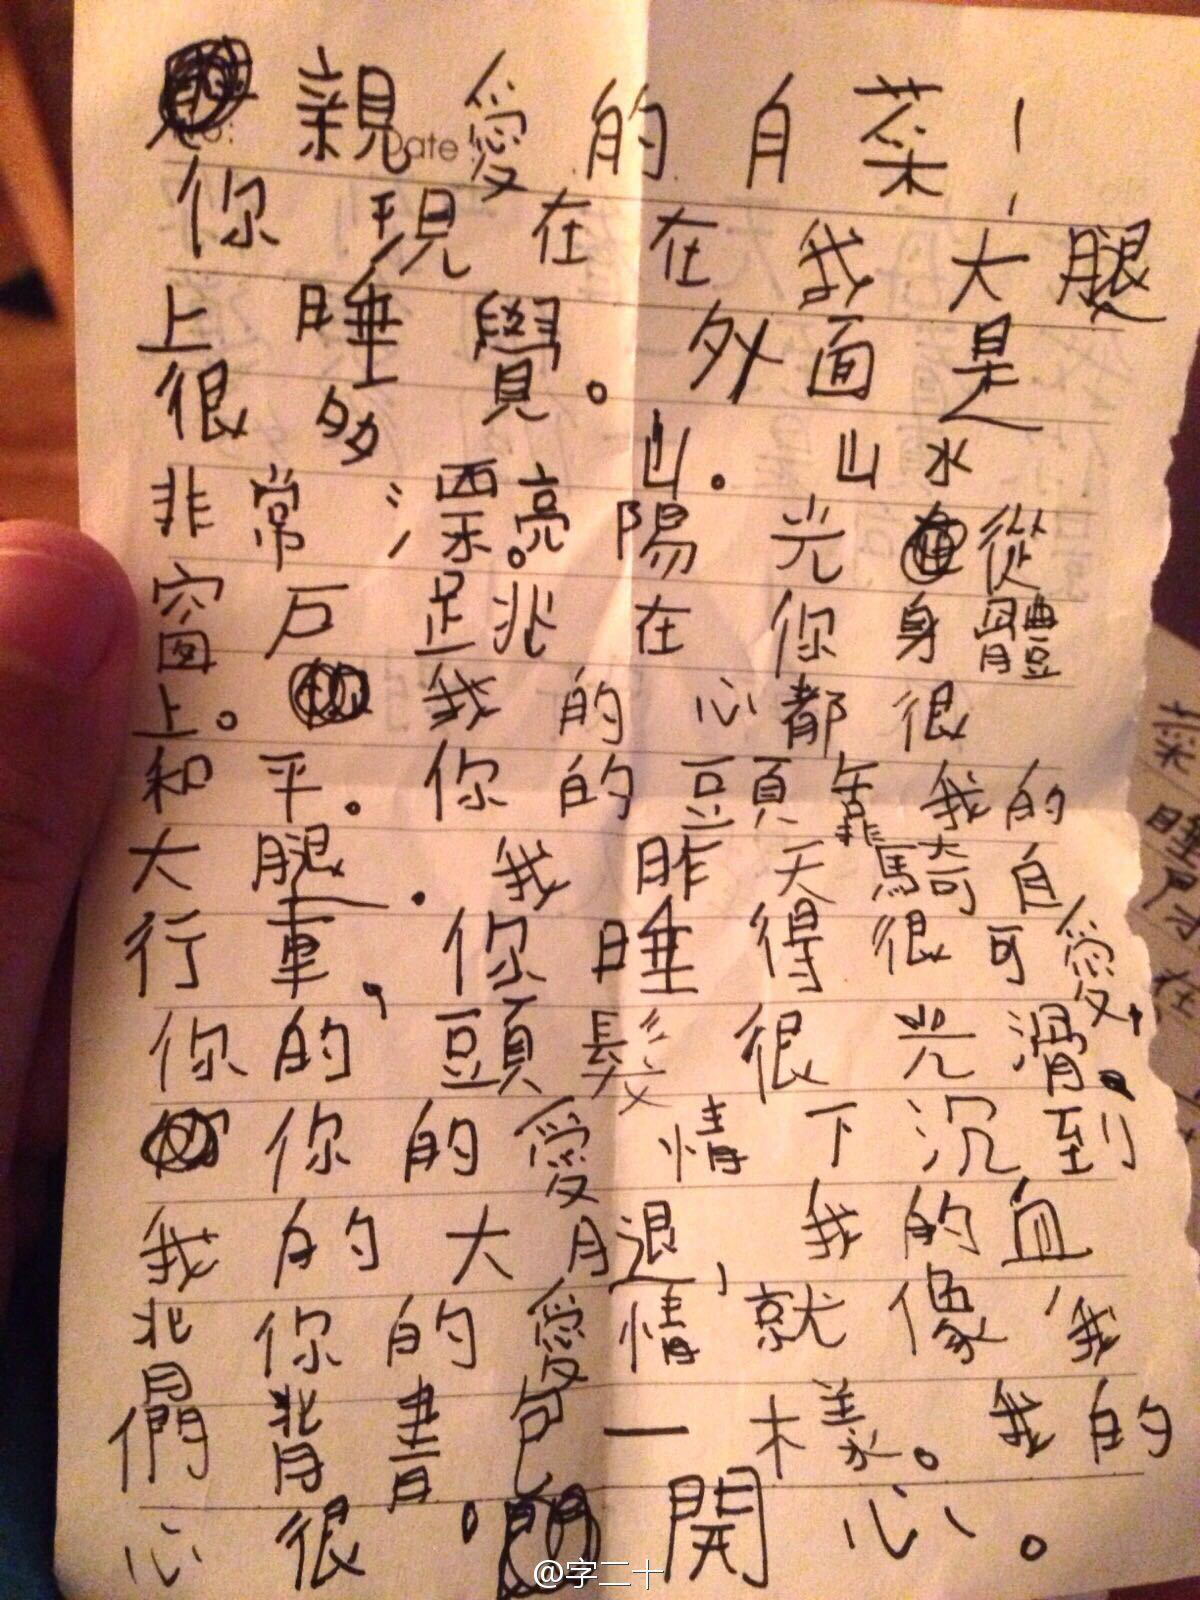 親愛的月菜！
Date
你現在在我大腿
上睡覺。外面是
很多山。山水
非常漂亮。陽光從
窗戶跳在你身體
上。我的心都很
和平。你的頭靠我的
大腿。我昨天騎自
行車，你睡得很可愛，
你的頭髮很光滑。
你的愛情下沉到
我的大腿，我的血
背你的愛情就像我
們背書包一樣。我的
心很開心。
菜
睡
在
@字二十